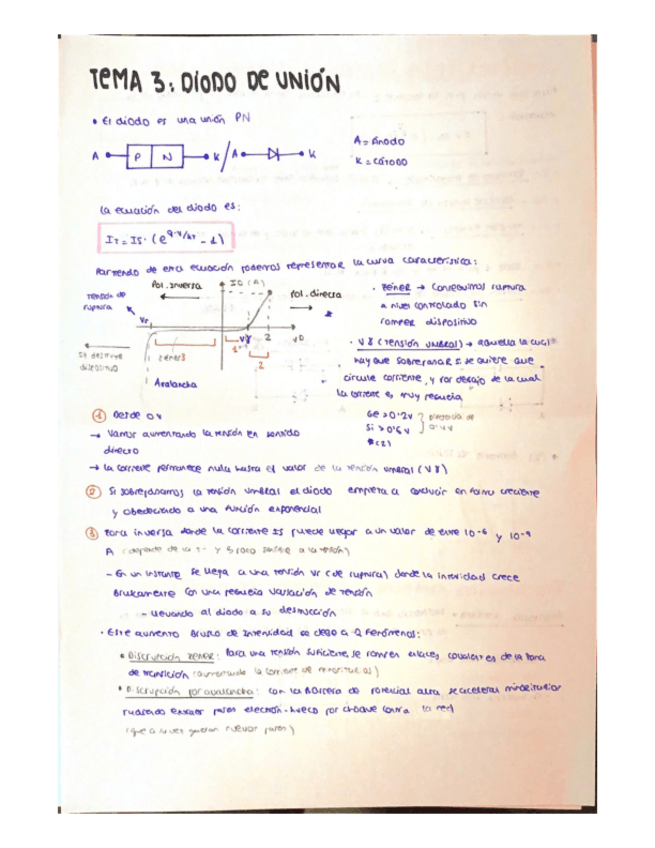 TEMA 3: DIODO DE UNIÓN
• El diodo es una unión PN
A P N K / A K
A = Ánodo
K = Cátodo
la ecuación del diodo es:
IT = IS · (e^q·V/kT - 1)
Partiendo de esta ecuación podemos representar la curva característica:
Pol. inversa
ID (A)
Pol. directa
Tensión de
ruptura
Vr
Vγ
2
VD
1
2
zener 3
Se destruye
dispositivo
Avalancha
• zener → Conseguimos ruptura
a nivel controlado sin
romper dispositivo
• Vγ (Tensión umbral) → aquella la cual
hay que sobrepasar si se quiere que
circule corriente, y por debajo de la cual
la corriente es muy pequeña
Ge > 0'2V
Si > 0'6V
① Desde 0V
→ Vamos aumentando la tensión en sentido
directo
→ la corriente permanece nula hasta el valor de la tensión umbral (Vγ)
② Si sobrepasamos la tensión umbral el diodo empieza a conducir en forma creciente
y obedeciendo a una función exponencial
③ Zona inversa donde la corriente IS puede llegar a un valor de entre 10-6 y 10-9
A (depende de la Tª y es poco sensible a la tensión)
- En un instante se llega a una tensión Vr (de ruptura) donde la intensidad crece
bruscamente con una pequeña variación de tensión
- llevando al diodo a su destrucción
• Este aumento brusco de intensidad se debe a 2 fenómenos:
• Disrupción zener: Para una tensión suficiente, se rompen enlaces covalentes de la zona
de transición (aumentando la corriente de minoritarios)
• Disrupción por avalancha: con la barrera de potencial alta, se aceleran minoritarios
pudiendo extraer pares electrón-hueco por choque contra la red
(que a su vez generan nuevos pares)